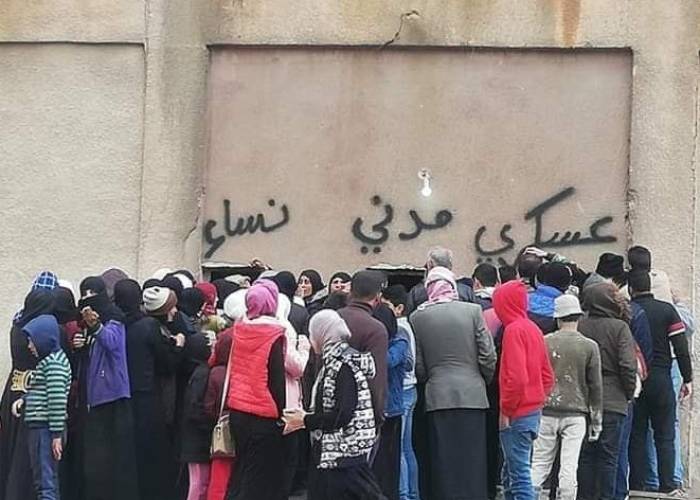 عسكري مدني نساء